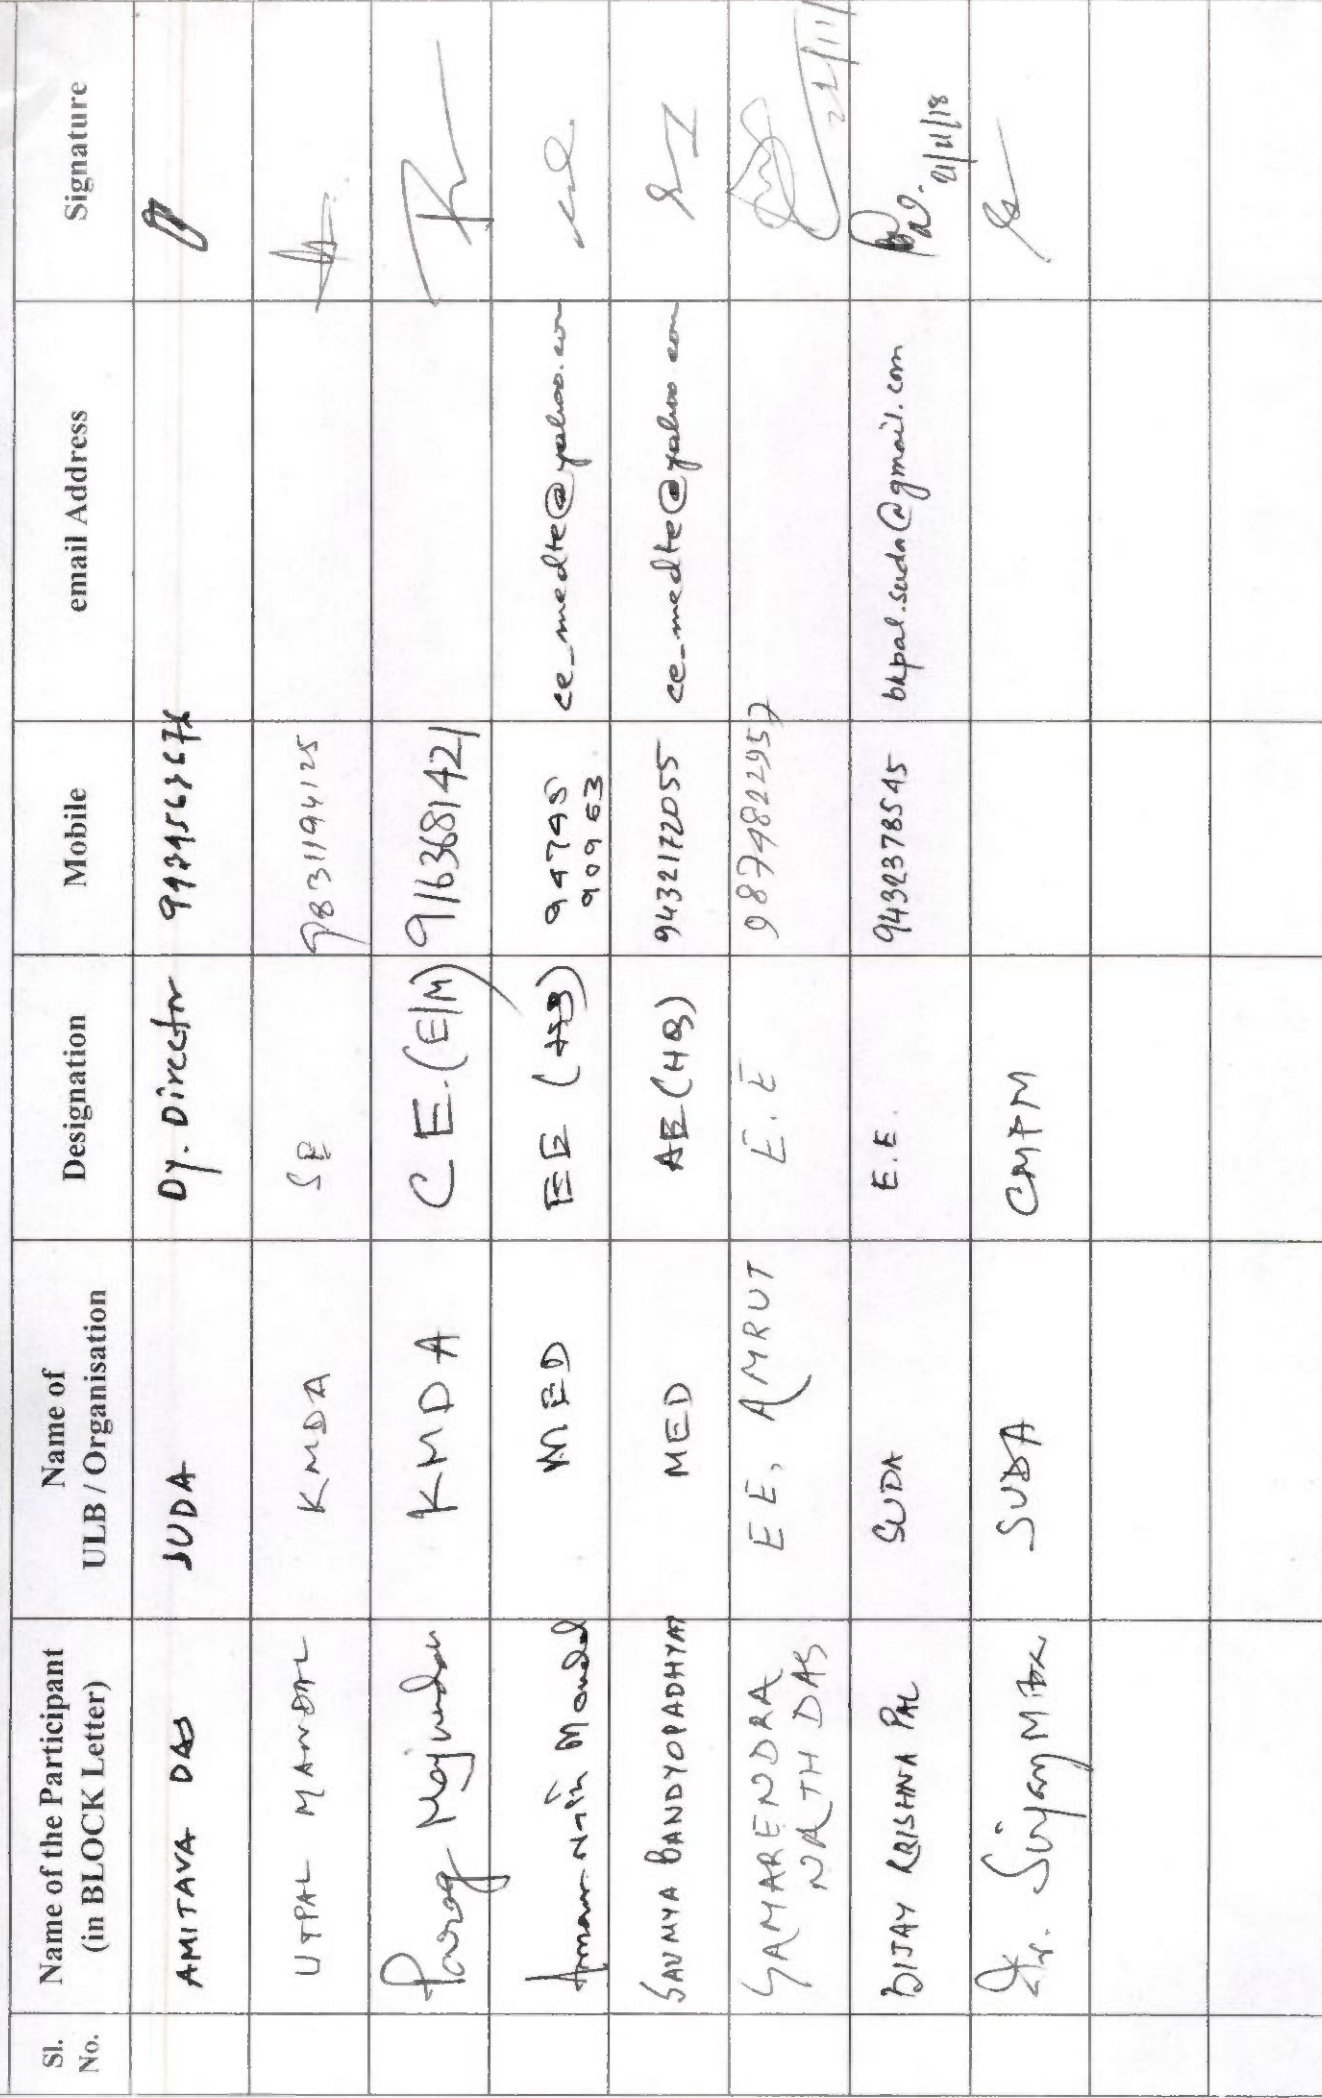 Sl. No. Name of the Participant (in BLOCK Letter) Name of ULB / Organisation Designation Mobile email Address Signature
AMITAVA DAS SUDA Dy. Director
UTPAL MANDAL KMDA SE 9831194125
Parag Majumdar KMDA C E. (E/M) 9163681421
Amar Nath Mondal MED EE (HQ) ce_medte@yahoo.com
SAUMYA BANDYOPADHYAY MED AE (HQ) 9432172055 ce_medte@yahoo.com
SAMARENDRA NATH DAS EE, AMRUT E.E 9874822957
BIJAY KRISHNA PAL SUDA E.E. 9432378545 bkpal.suda@gmail.com 21/11/18
Dr. Sujay Mitra SUDA